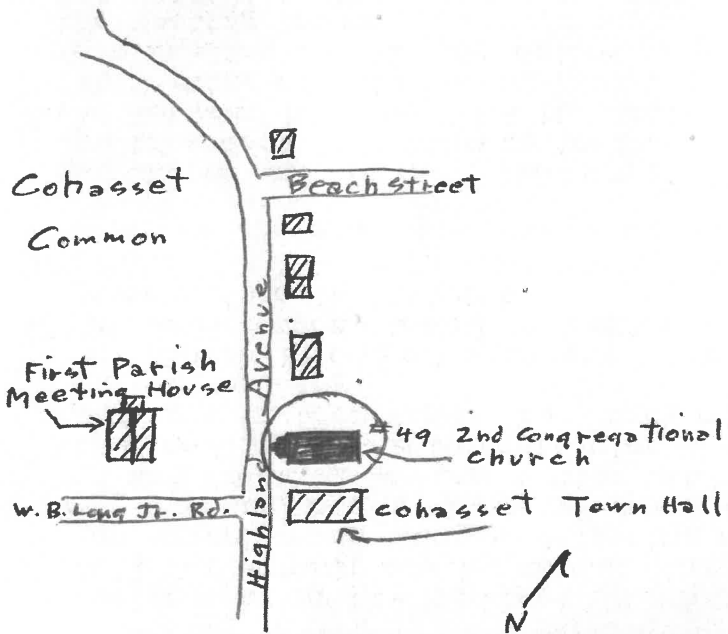 Cohasset
Common
Beach Street
Highland Avenue
First Parish
Meeting House
#49 2nd Congregational
Church
W.B. Long Jr. Rd.
Cohasset Town Hall
N